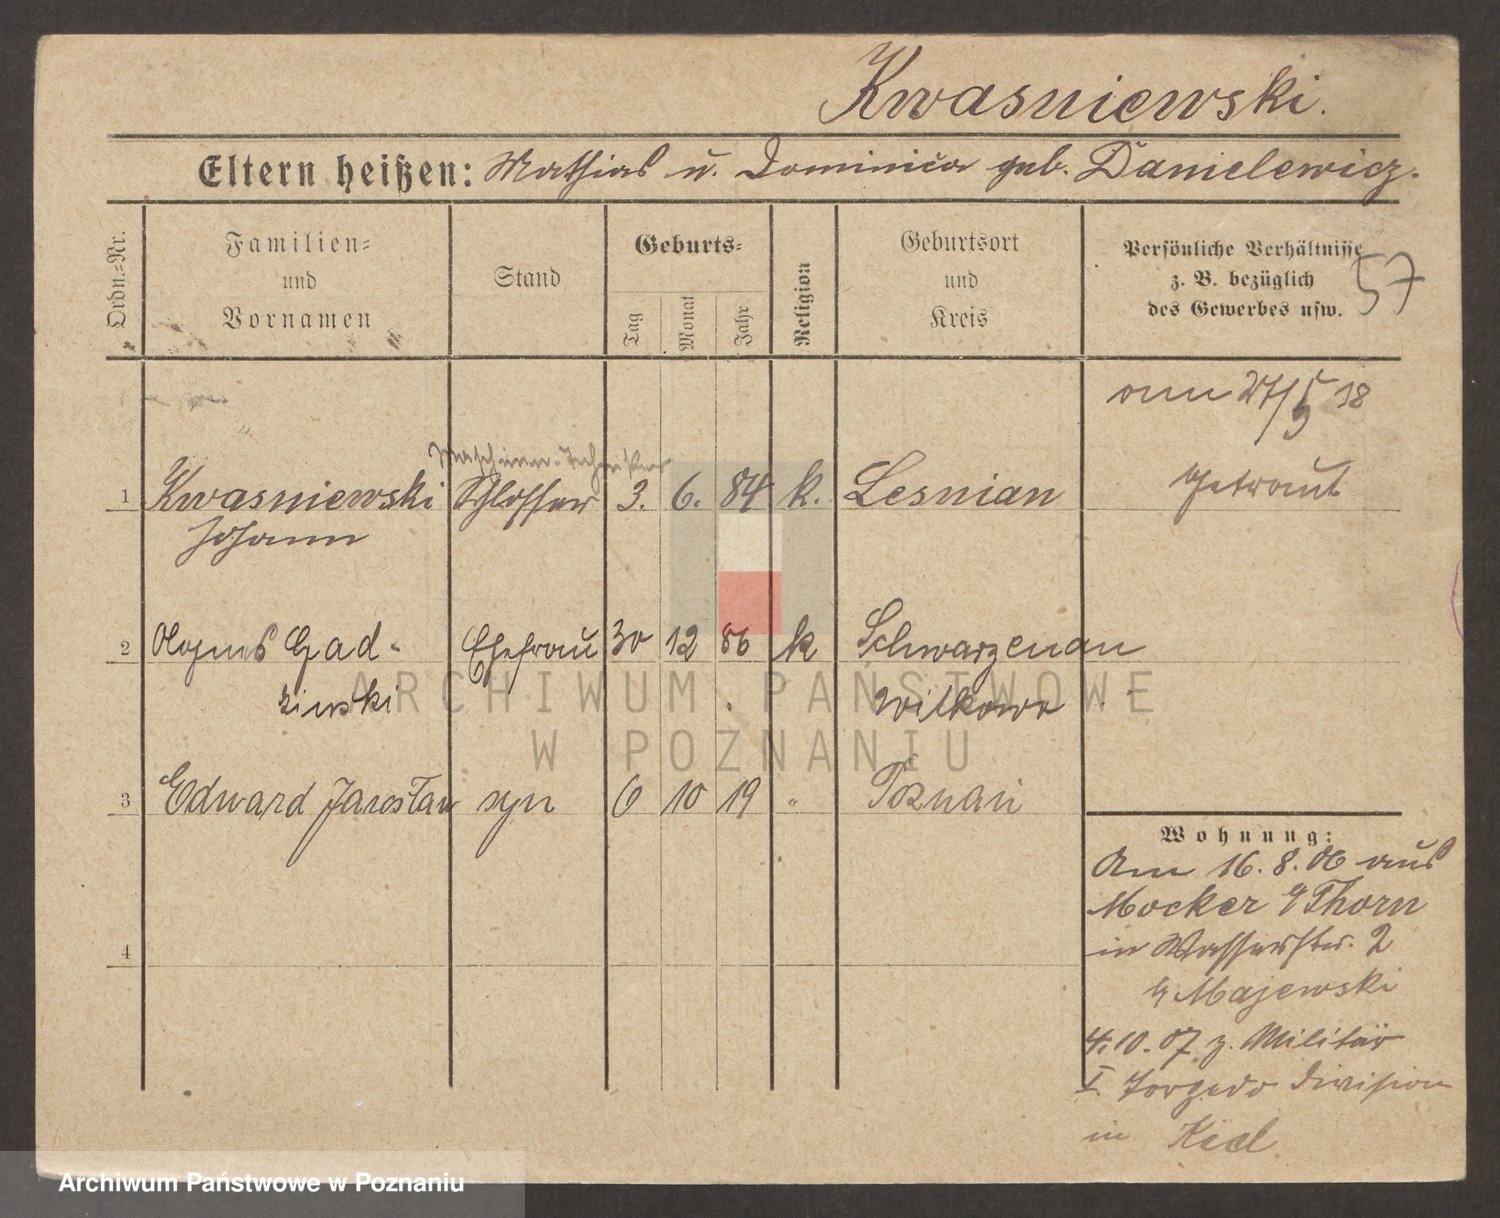 Kwasniewski.
Eltern heißen: Mathias u. Dominica geb. Danielewicz.
Ordn.=Nr.
Familien=
und
Vornamen
Stand
Geburts=
Tag
Monat
Jahr
Religion
Geburtsort
und
Kreis
Persönliche Verhältnisse
z. B. bezüglich
des Gewerbes usw.
57
am 27/5 18
getraut
Maschinen-Techniker
1 Kwasniewski Schlosser 3. 6. 84 k. Lesnian
Johann
2 Agnes Gad- Ehefrau 30 12 86 k Schwarzenau
zinski Witkowo
3 Edward Jarosław syn 6 10 19 " Poznań
4
Wohnung:
Am 16. 8. 06 aus
Mocker b/Thorn
in Wasserstr. 2
b/ Majewski
4.10.07 z. Militär
I. Torpedo Division
in Kiel
ARCHIWUM PAŃSTWOWE
W POZNANIU
Archiwum Państwowe w Poznaniu